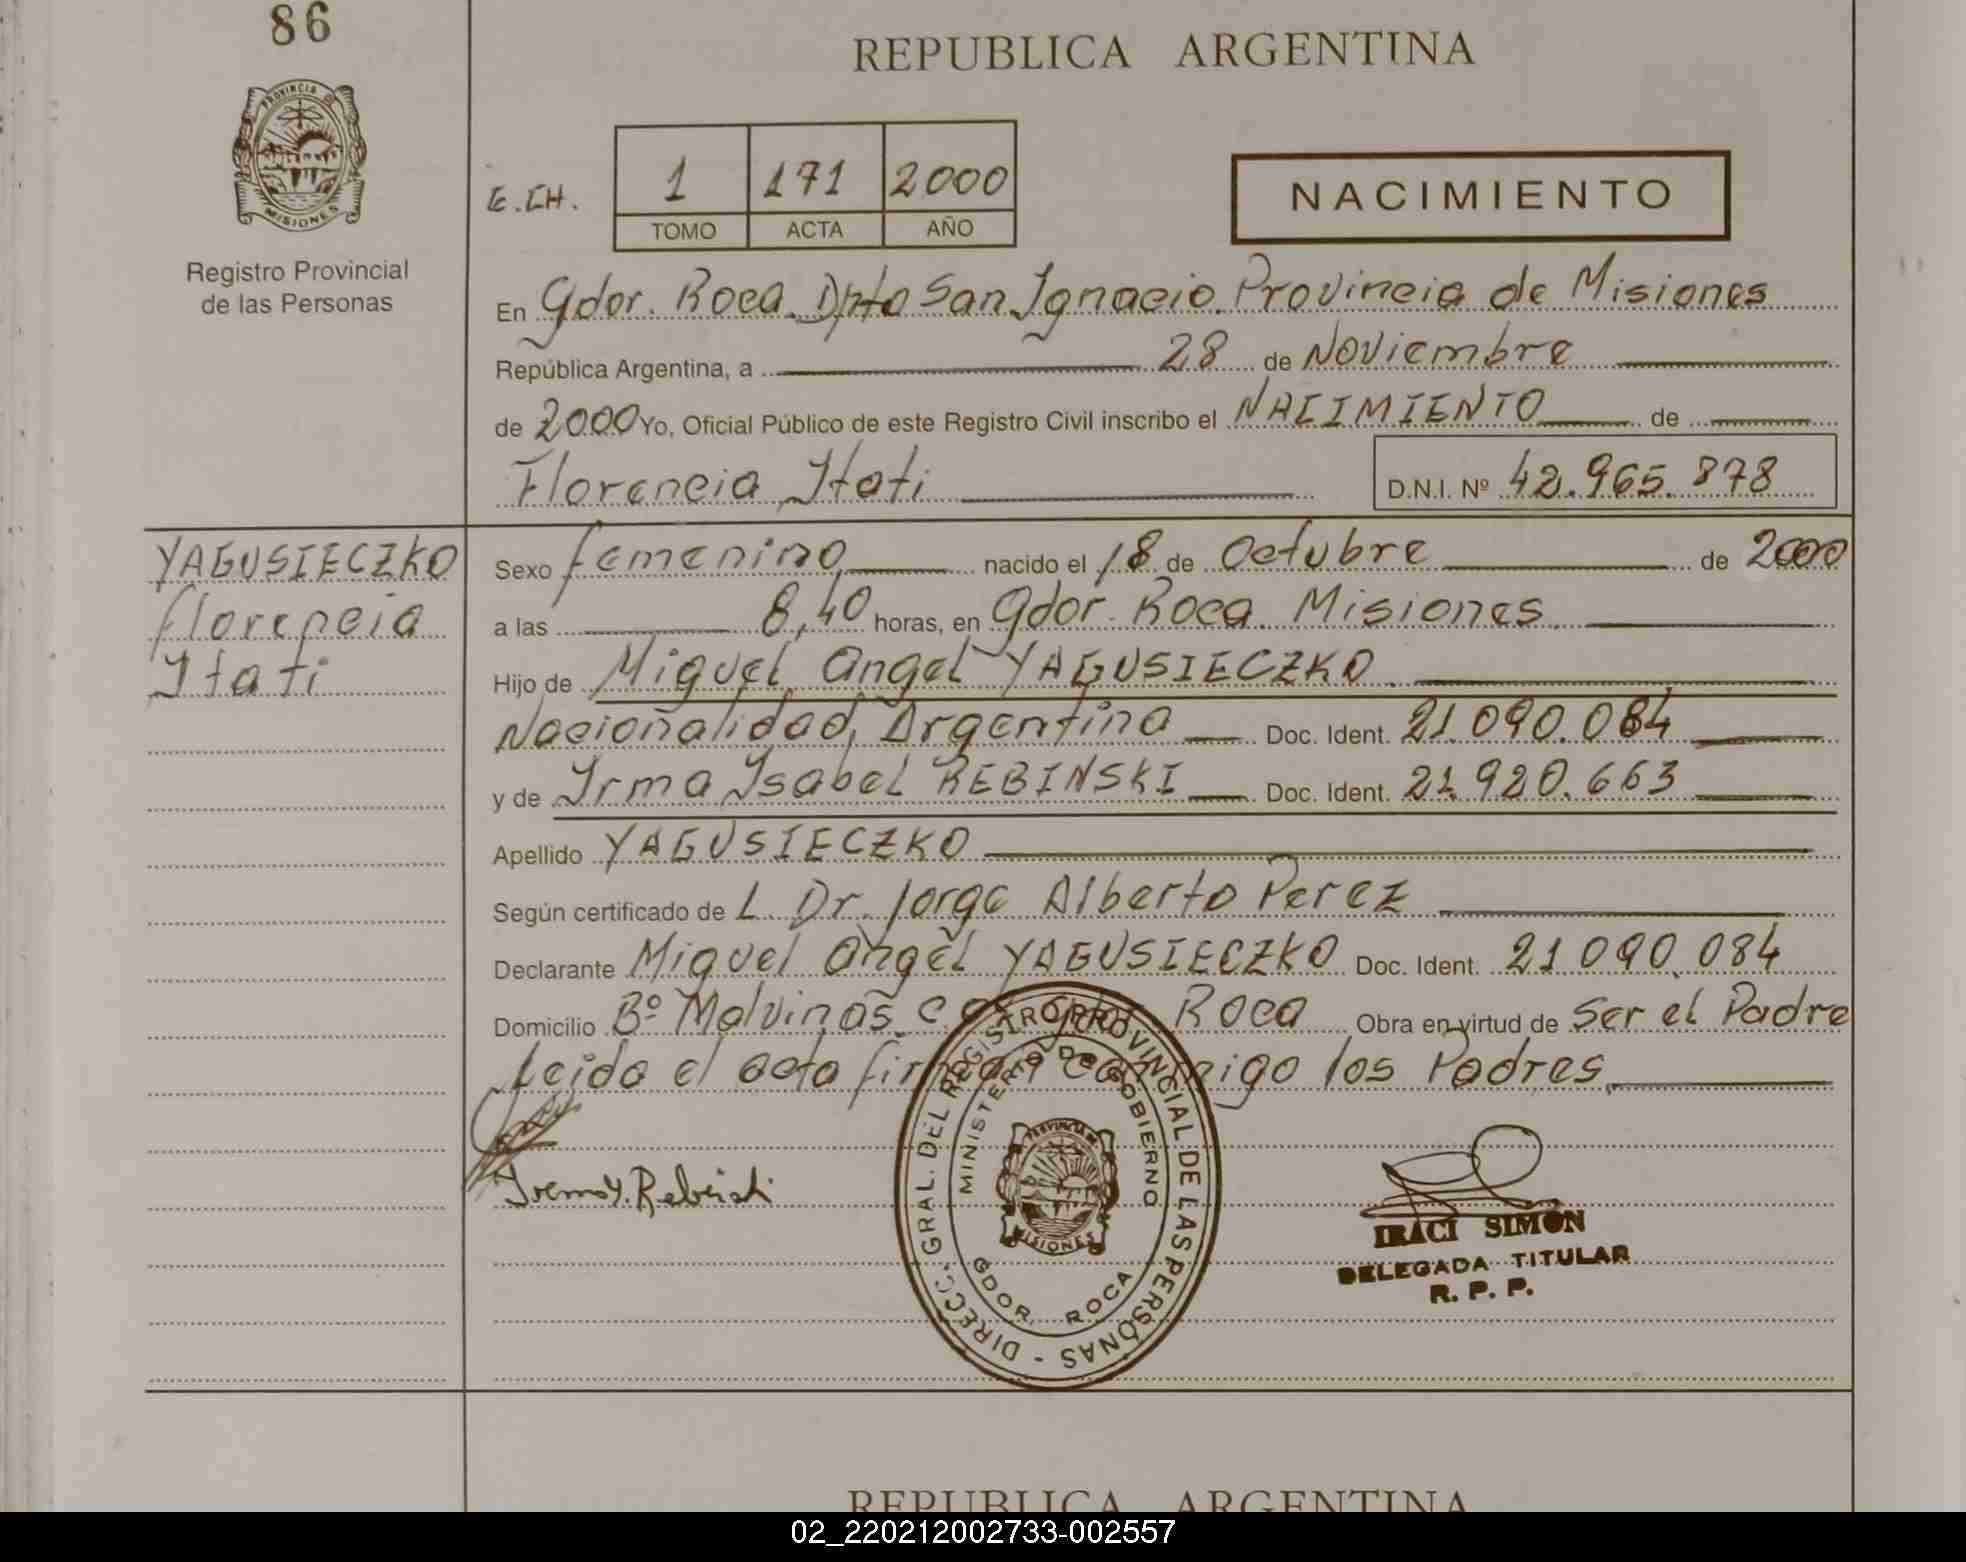 86
PROVINCIA DE
MISIONES
Registro Provincial
de las Personas
REPUBLICA ARGENTINA
E.CH.
1 171 2000
TOMO ACTA AÑO
NACIMIENTO
En Gdor. Roca. Dpto San Ignacio. Provincia de Misiones
República Argentina, a 28 de Noviembre
de 2000 Yo, Oficial Público de este Registro Civil inscribo el NACIMIENTO de
Florencia Itati D.N.I. Nº 42.965.878
YAGUSIECZKO
Florencia
Itati
Sexo femenino nacido el 18 de Octubre de 2000
a las 8,40 horas, en Gdor. Roca. Misiones.
Hijo de Miguel Angel YAGUSIECZKO
Nacionalidad, Argentina Doc. Ident. 21.090.084
y de Irma Ysabel REBINSKI Doc. Ident. 21.920.663
Apellido YAGUSIECZKO
Según certificado de L. Dr. Jorge Alberto Perez
Declarante Miguel Angel YAGUSIECZKO Doc. Ident. 21 090.084
Domicilio Bº Malvinas. Roca Obra en virtud de Ser el Padre
Leida el acta firman conmigo los Padres
DIRECC. GRAL. DEL REGISTRO PROVINCIAL DE LAS PERSONAS -
MINISTERIO DE GOBIERNO
PROVINCIA DE
MISIONES
GDOR. ROCA
IRACI SIMON
DELEGADA TITULAR
R. P. P.
REPUBLICA ARGENTINA
02_220212002733-002557